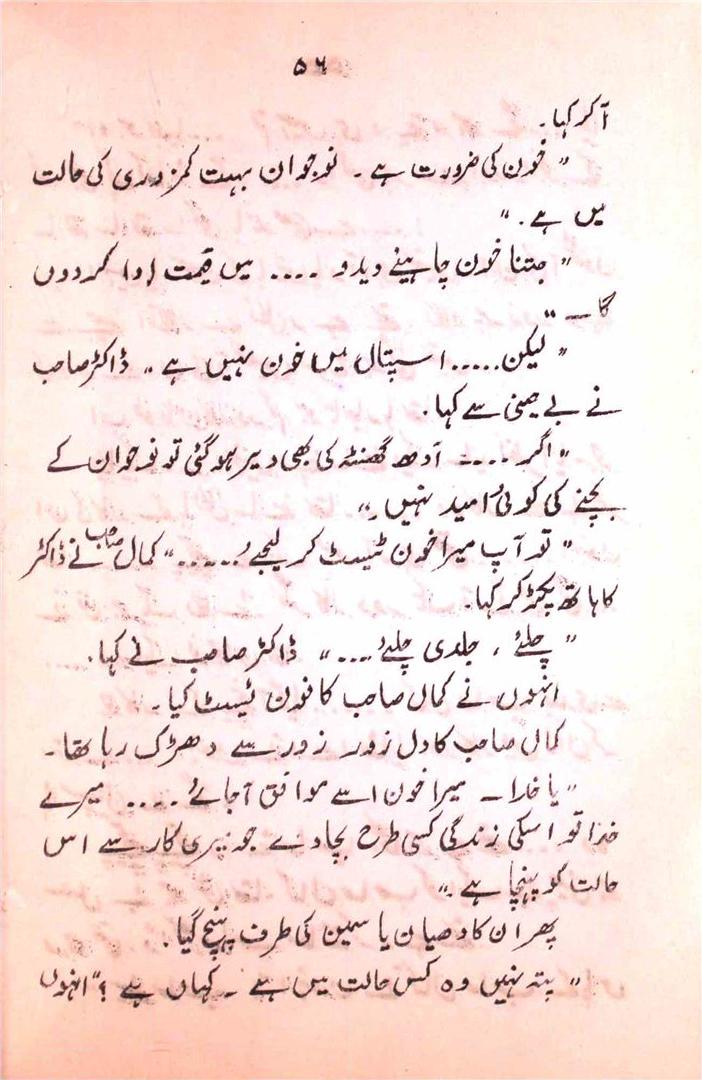 ۵۶
آکر کہا۔
" خون کی ضرورت ہے ۔ نوجوان بہت کمزوری کی حالت
میں ہے ۔ "
" جتنا خون چاہیئے دیدو .... میں قیمت ادا کردوں
گا ۔ "
" لیکن ..... اسپتال میں خون نہیں ہے " ڈاکٹر صاحب
نے بے چینی سے کہا۔
" اگر .... آدھ گھنٹہ کی بھی دیر ہوگئی تو نوجوان کے
بچنے کی کوئی امید نہیں ۔ "
" تو آپ میرا خون ٹیسٹ کر لیجیے ..... " کمال صاحب نے ڈاکٹر
کا ہاتھ پکڑ کر کہا۔
" چلئے ، جلدی چلئے .... " ڈاکٹر صاحب نے کہا۔
انہوں نے کمال صاحب کا خون ٹیسٹ کیا ۔
کمال صاحب کا دل زور زور سے دھڑک رہا تھا ۔
" یا خدا ۔ میرا خون اسے موافق آجائے .... میرے
خدا تو اسکی زندگی کسی طرح بچادے جو میری کار سے اس
حالت کو پہنچا ہے ۔ "
پھر ان کا دھیان یاسمین کی طرف پہنچ گیا۔
" پتہ نہیں وہ کس حالت میں ہے ۔ کہاں ہے ؟ " انہوں